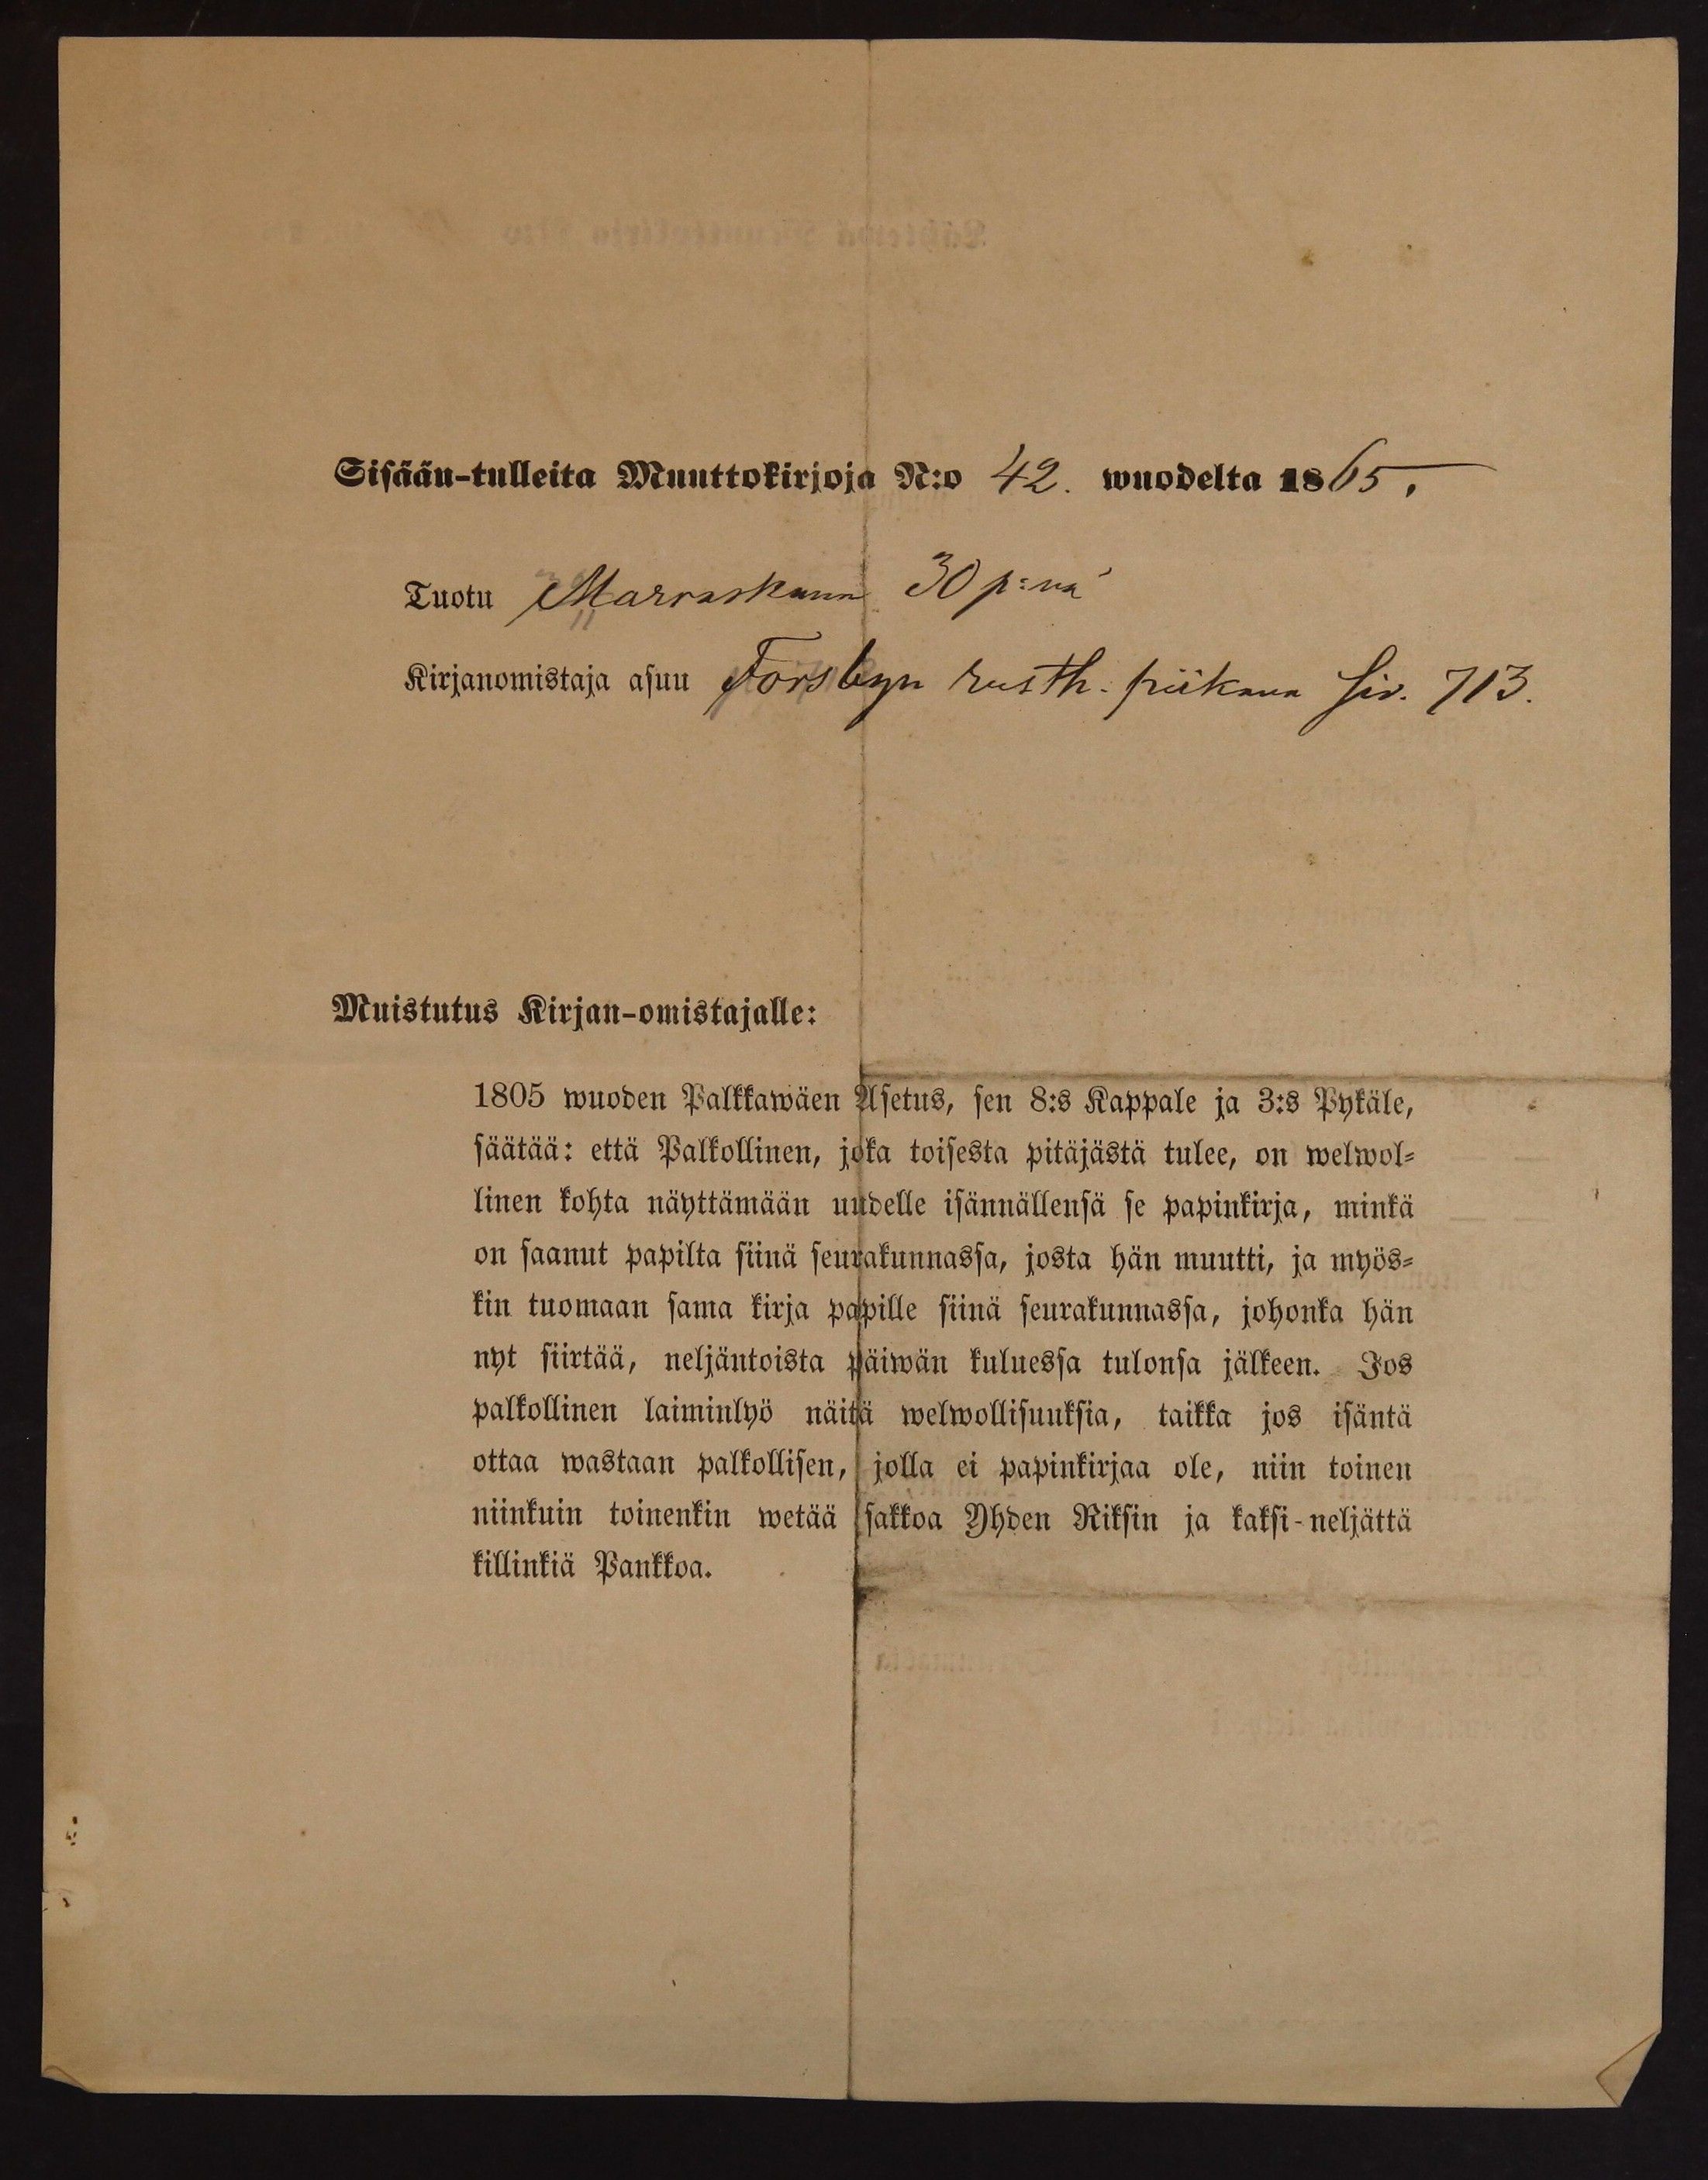 Sisään-tulleita Muuttokirjoja N:o 42. wuodelta 1865.
Tuotu Marraskuun 30 p:nä
Kirjanomistaja asuu Forsbyn rusth. piikana Siv. 713.
Muistutus Kirjan-omistajalle:
1805 wuoden Palkkawäen Asetus, sen 8:s Kappale ja 3:s Pykäle,
säätää: että Palkollinen, joka toisesta pitäjästä tulee, on welwol-
linen kohta näyttämään uudelle isännällensä se papinkirja, minkä
on saanut papilta siinä seurakunnassa, josta hän muutti, ja myös-
kin tuomaan sama kirja papille siinä seurakunnassa, johonka hän
nyt siirtää, neljäntoista päiwän kuluessa tulonsa jälkeen. Jos
palkollinen laiminlyö näitä welwollisuuksia, taikka jos isäntä
ottaa wastaan palkollisen, jolla ei papinkirjaa ole, niin toinen
niinkuin toinenkin wetää sakkoa Yhden Riksin ja kaksi-neljättä
killinkiä Pankkoa.